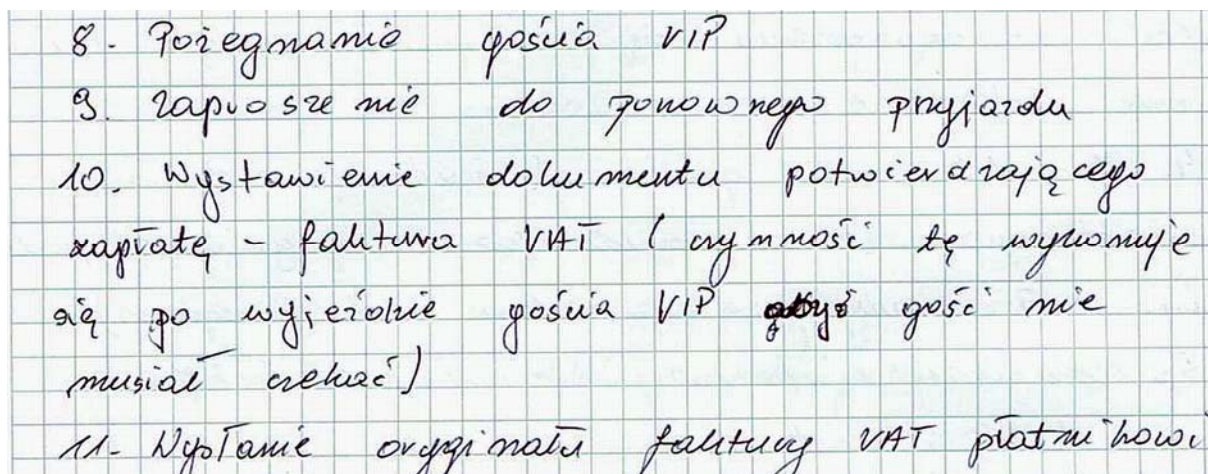 8. Pożegnanie gościa VIP
9. Zaproszenie do ponownego przyjazdu
10. Wystawienie dokumentu potwierdzającego
zapłatę - faktura VAT (czynność tę wykonuje
się po wyjeździe gościa VIP gość nie
musiał czekać)
11. Wysłanie oryginału faktury VAT płatnikowi